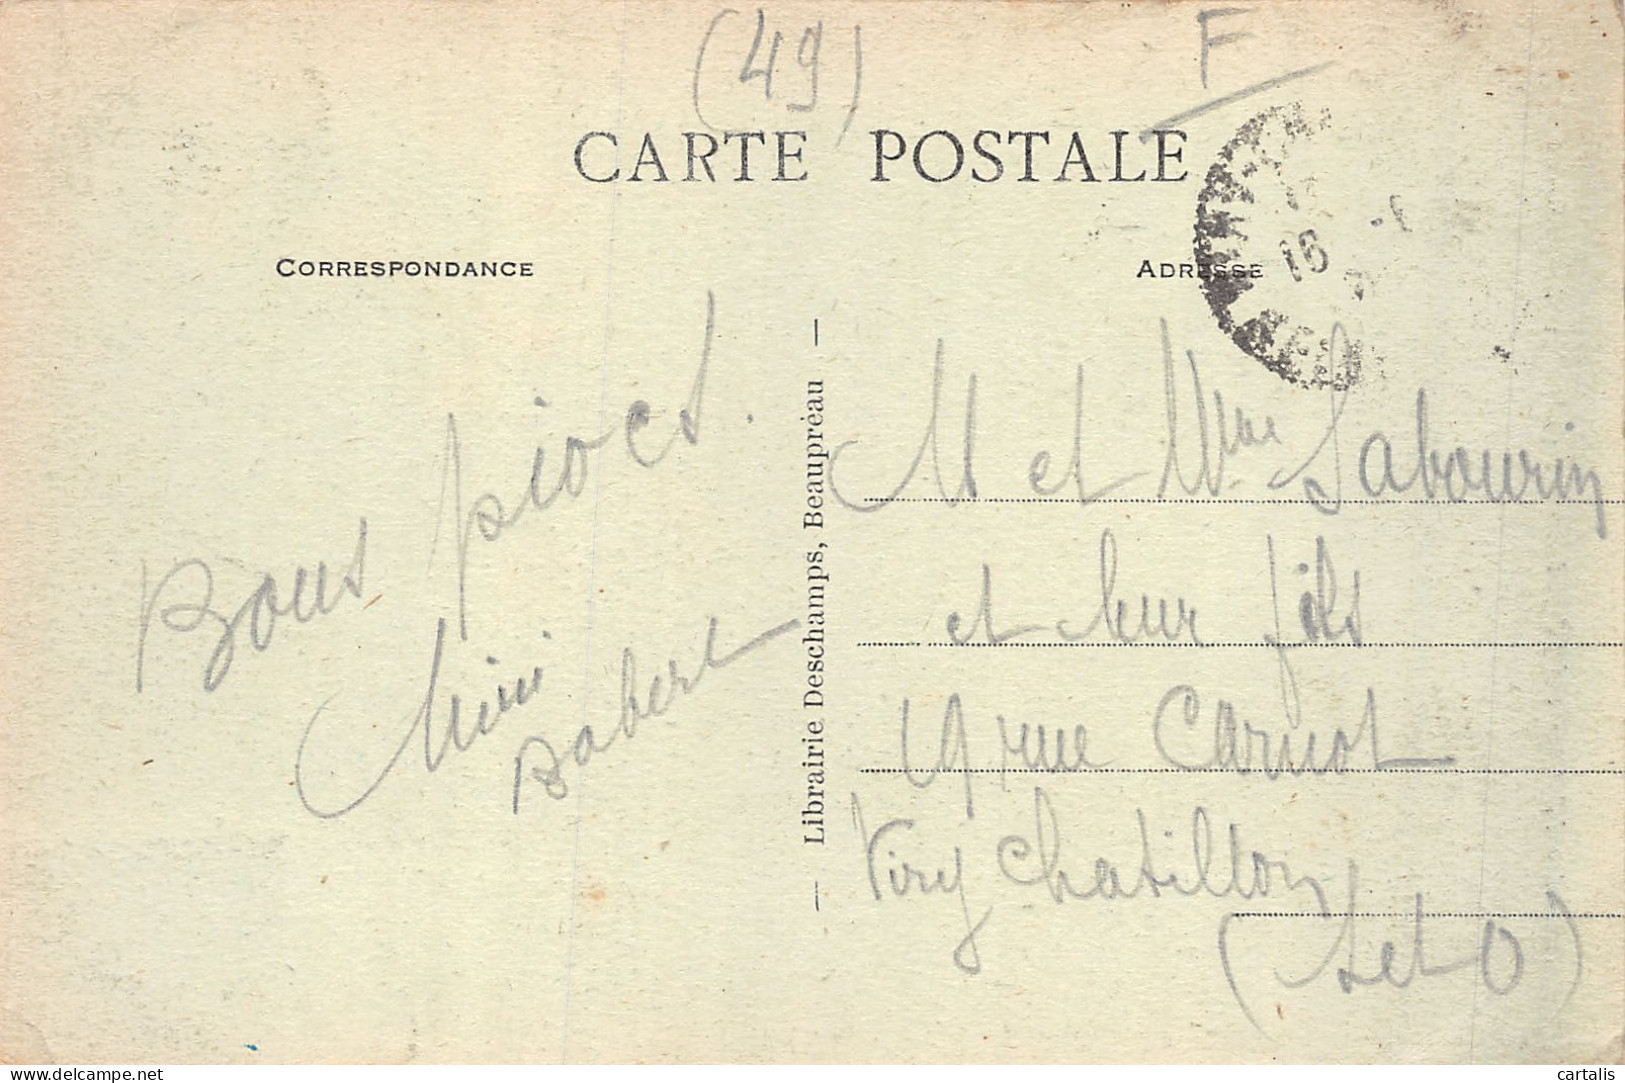 (49)
F
CARTE POSTALE
CORRESPONDANCE
ADRESSE
16
Bous piocs.
Mimi
Robert
Librairie Deschamps, Beaupréau
M et Mme Sabourin
et leur fils
19 rue Carnot
Viry Chatillon
(S et O)
www.delcampe.net
cartalis